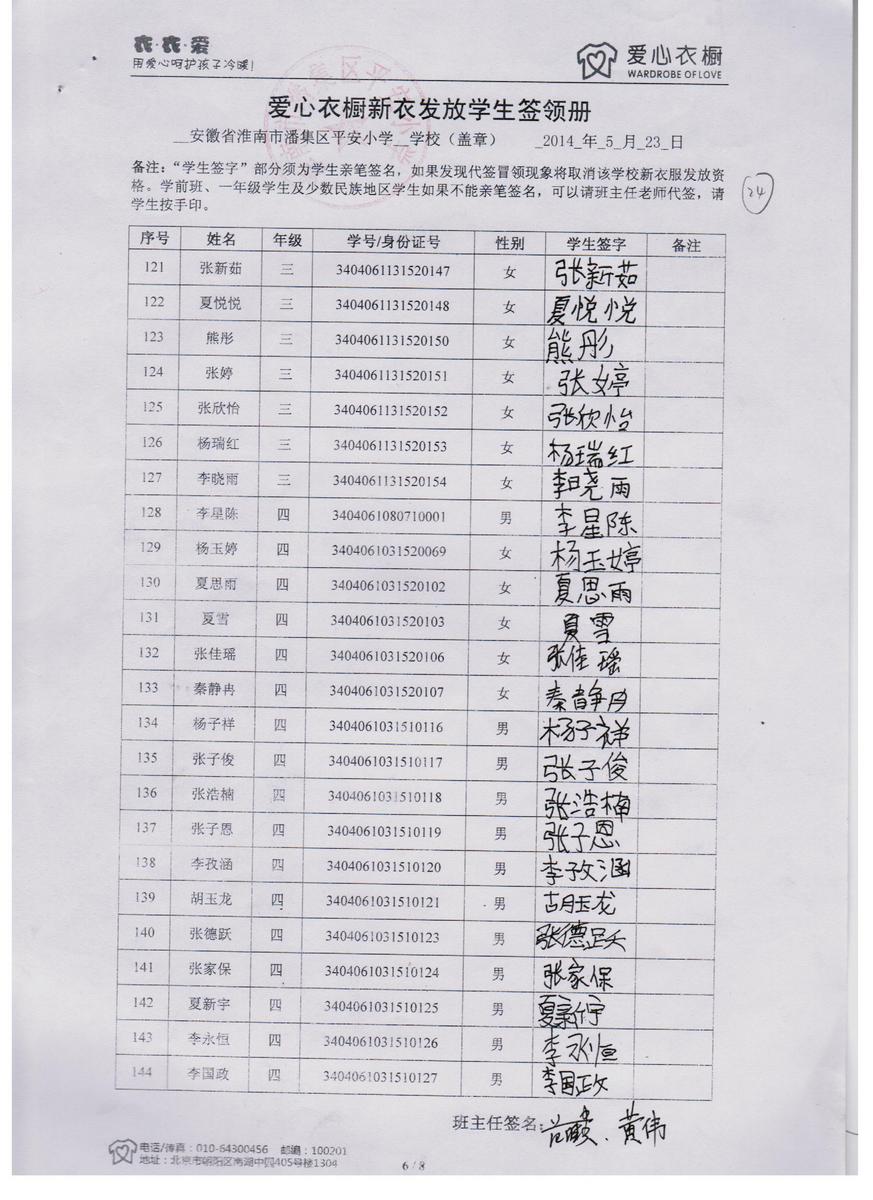 衣·衣·爱
用爱心呵护孩子冷暖!
爱心衣橱
WARDROBE OF LOVE
爱心衣橱新衣发放学生签领册
__安徽省淮南市潘集区平安小学__学校（盖章） _2014_年_5_月_23_日
备注：“学生签字”部分须为学生亲笔签名，如果发现代签冒领现象将取消该学校新衣服发放资
格。学前班、一年级学生及少数民族地区学生如果不能亲笔签名，可以请班主任老师代签，请
学生按手印。
24
序号 姓名 年级 学号/身份证号 性别 学生签字 备注
121 张新茹 三 3404061131520147 女 张新茹
122 夏悦悦 三 3404061131520148 女 夏悦悦
123 熊彤 三 3404061131520150 女 熊彤
124 张婷 三 3404061131520151 女 张婷
125 张欣怡 三 3404061131520152 女 张欣怡
126 杨瑞红 三 3404061131520153 女 杨瑞红
127 李晓雨 三 3404061131520154 女 李晓雨
128 李星陈 四 3404061080710001 男 李星陈
129 杨玉婷 四 3404061031520069 女 杨玉婷
130 夏思雨 四 3404061031520102 女 夏思雨
131 夏雪 四 3404061031520103 女 夏雪
132 张佳瑶 四 3404061031520106 女 张佳瑶
133 秦静冉 四 3404061031520107 女 秦静冉
134 杨子样 四 3404061031510116 男 杨子祥
135 张子俊 四 3404061031510117 男 张子俊
136 张浩楠 四 3404061031510118 男 张浩楠
137 张子恩 四 3404061031510119 男 张子恩
138 李孜涵 四 3404061031510120 男 李孜涵
139 胡玉龙 四 3404061031510121 男 胡玉龙
140 张德跃 四 3404061031510123 男 张德跃
141 张家保 四 3404061031510124 男 张家保
142 夏新宇 四 3404061031510125 男 夏新宇
143 李永恒 四 3404061031510126 男 李永恒
144 李国政 四 3404061031510127 男 李国政
班主任签名: 黄伟
电话/传真：010-64300456 邮编：100201
地址：北京市朝阳区南湖中园405号楼1304
6 / 8